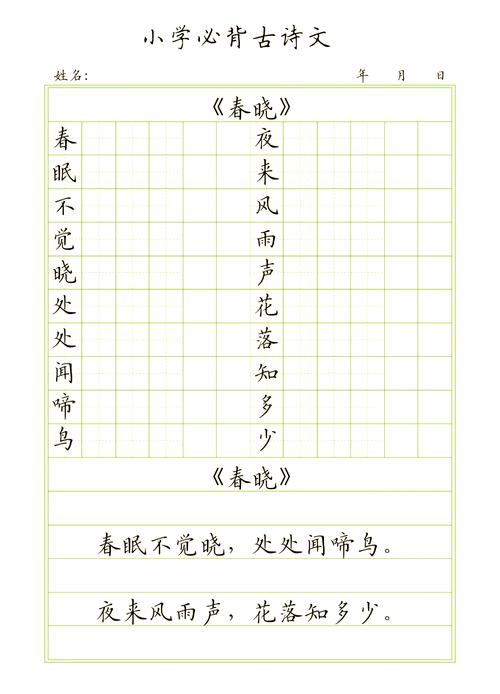 小学必背古诗文
姓名: 年 月 日
《春晓》
春 夜
眠 来
不 风
觉 雨
晓 声
处 花
处 落
闻 知
啼 多
鸟 少
《春晓》
春眠不觉晓，处处闻啼鸟。
夜来风雨声，花落知多少。